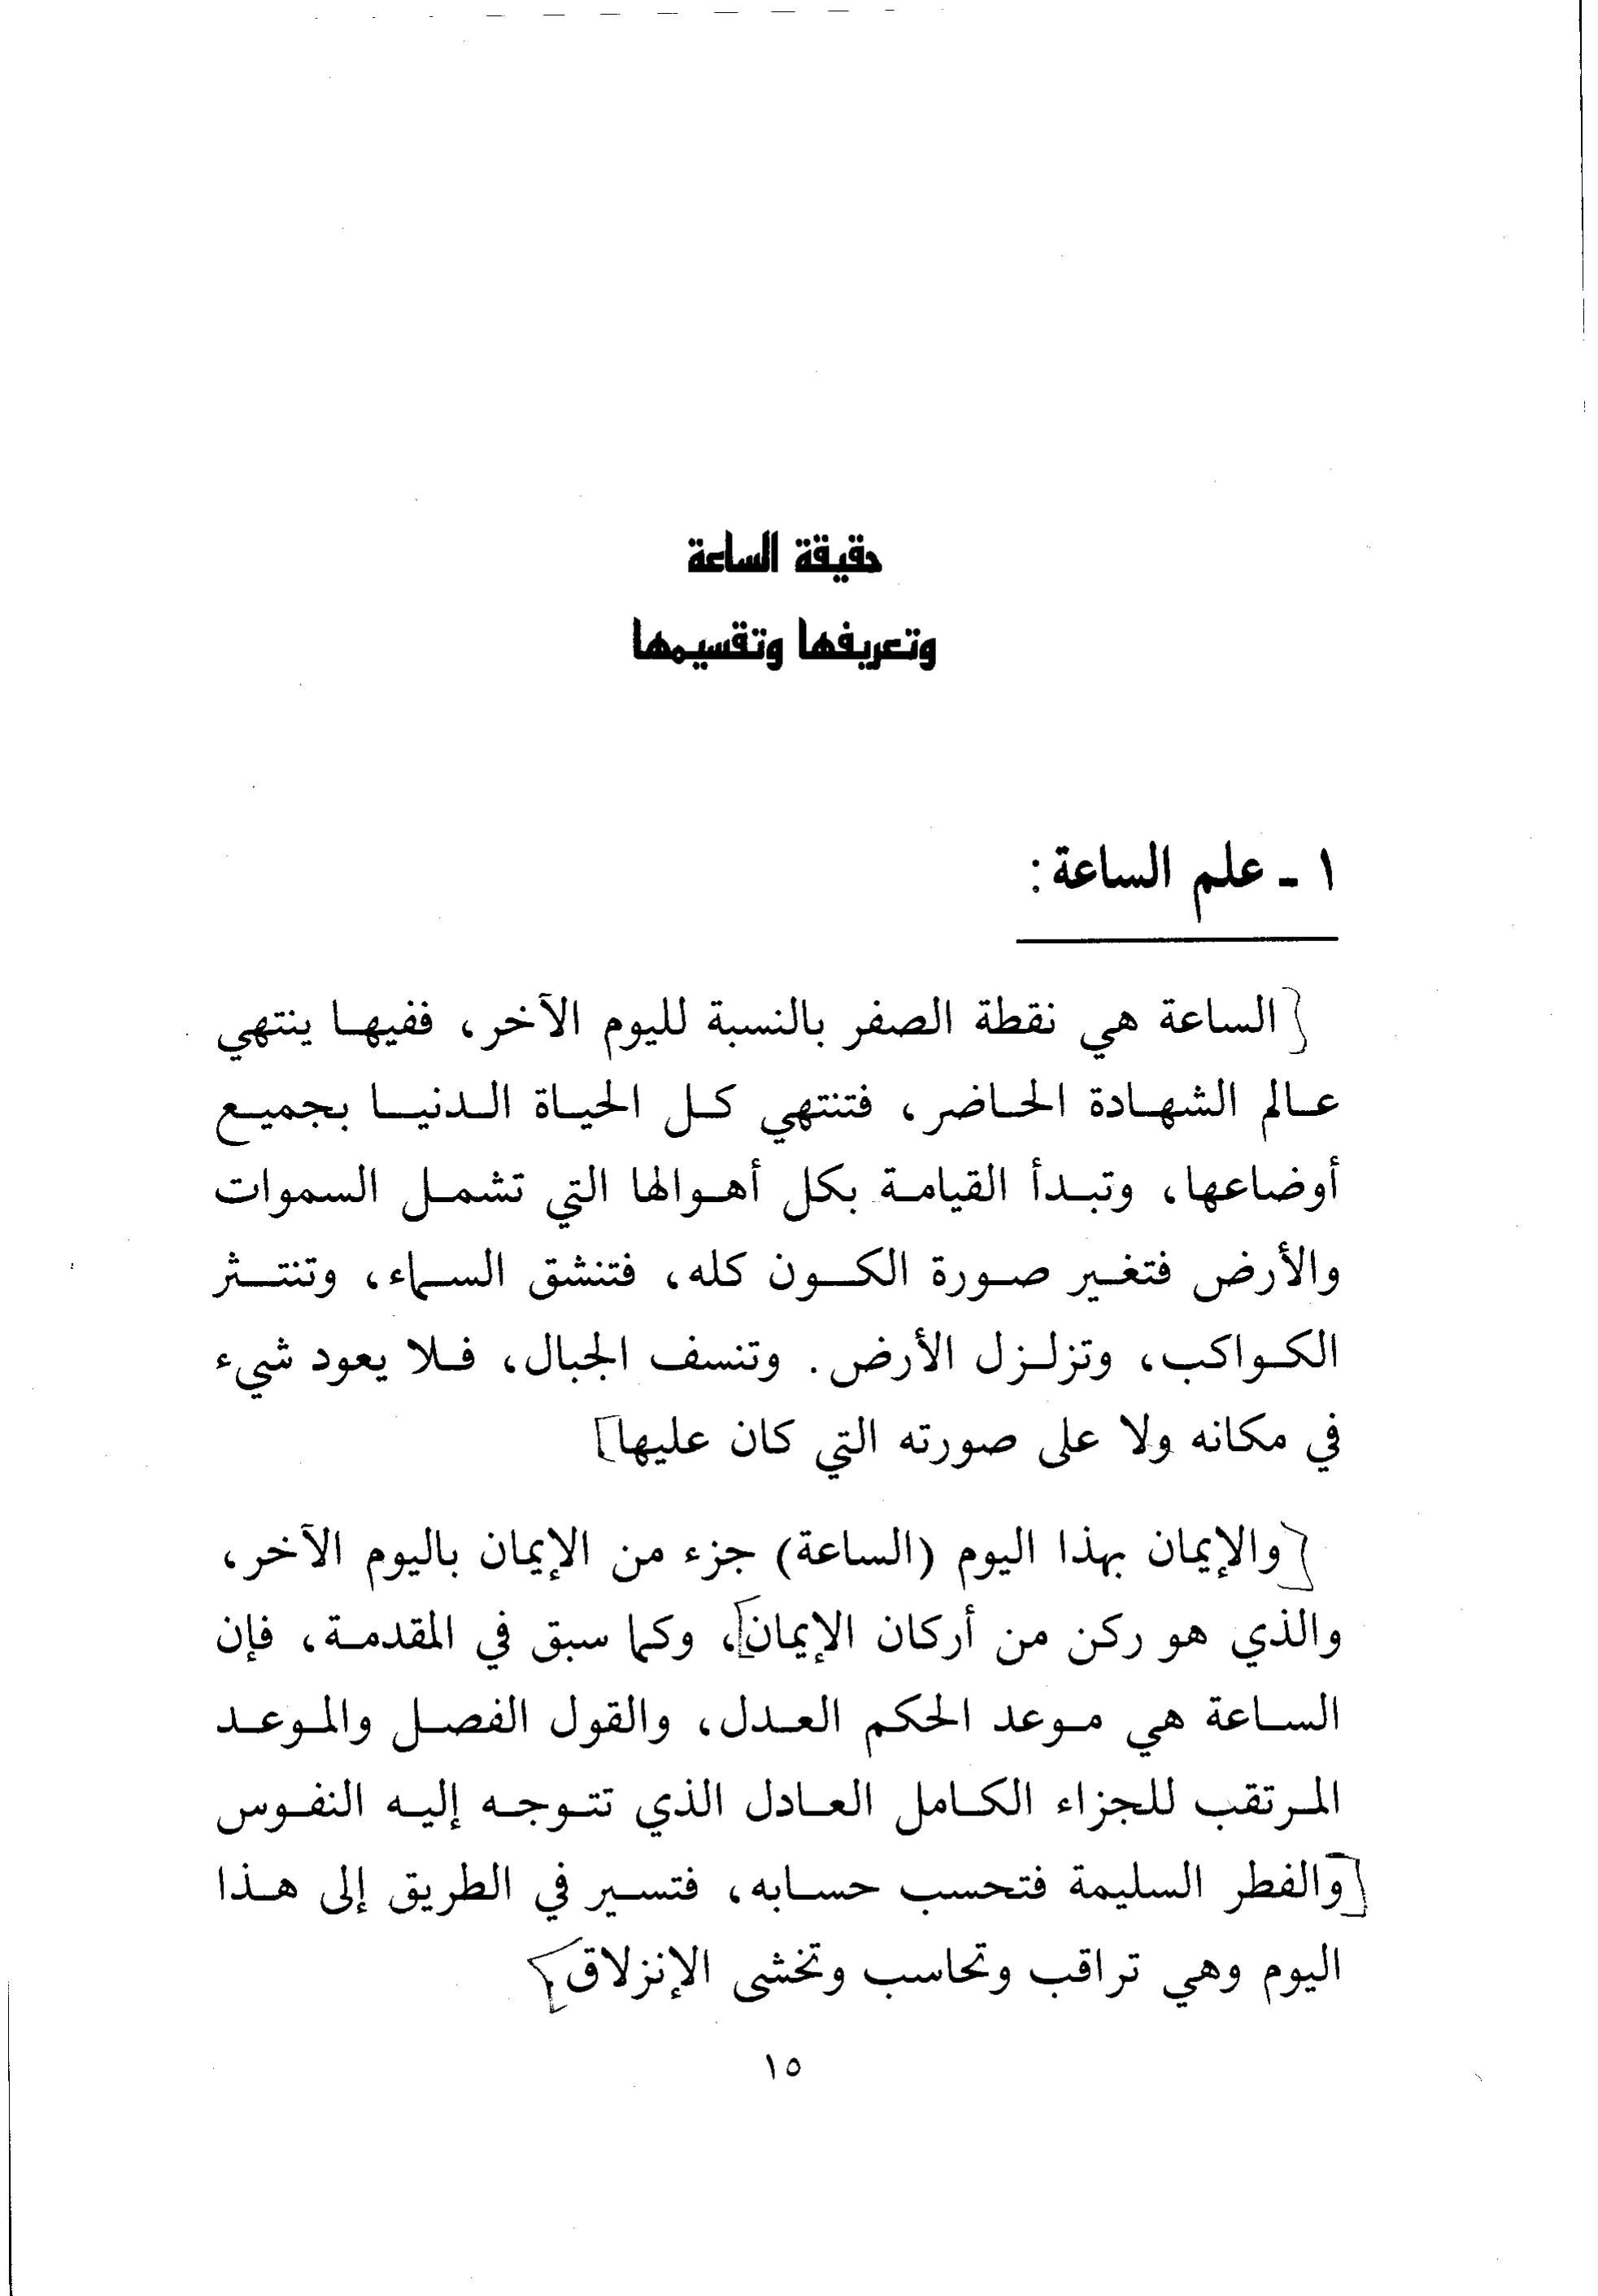 حقيقة الساعة
وتعريفها وتقسيمها
١ - علم الساعة:
[الساعة هي نقطة الصفر بالنسبة لليوم الآخر، ففيها ينتهي
عالم الشهادة الحاضر، فتنتهي كل الحياة الدنيا بجميع
أوضاعها، وتبدأ القيامة بكل أهوالها التي تشمل السموات
والأرض فتغير صورة الكون كله، فتنشق السماء، وتنتثر
الكواكب، وتزلزل الأرض. وتنسف الجبال، فلا يعود شيء
في مكانه ولا على صورته التي كان عليها]
[والإيمان بهذا اليوم (الساعة) جزء من الإيمان باليوم الآخر،
والذي هو ركن من أركان الإيمان]، وكما سبق في المقدمة، فإن
الساعة هي موعد الحكم العدل، والقول الفصل والموعد
المرتقب للجزاء الكامل العادل الذي تتوجه إليه النفوس
[والفطر السليمة فتحسب حسابه، فتسير في الطريق إلى هذا
اليوم وهي تراقب وتحاسب وتخشى الإنزلاق.]
١٥